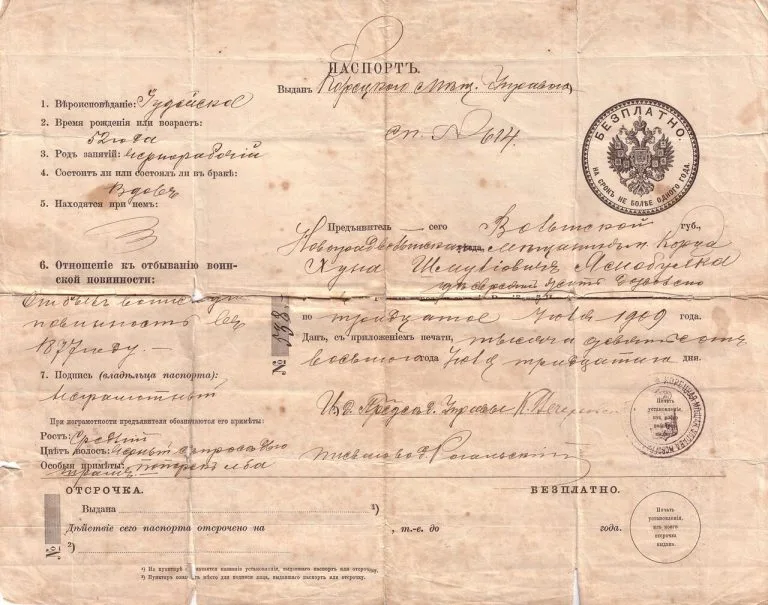 ПАСПОРТЪ.
Выданъ Корецкого мѣщ. Управою
сп. № 614.
БЕЗПЛАТНО.
НА СРОКЪ НЕ БОЛѢЕ ОДНОГО ГОДА.
1. Вѣроисповѣданіе: Іудейское
2. Время рожденія или возрастъ:
52 года
3. Родъ занятій: чернорабочій
4. Состоитъ ли или состоялъ ли въ бракѣ:
Вдовъ
5. Находятся при немъ:
Предъявитель сего Волынской губ.,
мѣщанинъ
6. Отношеніе къ отбыванію воин-
ской повинности:
Отбылъ воинскую
повинность въ
1877 году
№ 538
по тридцатое Іюня 1909 года.
Данъ, съ приложеніемъ печати, тысяча девятьсотъ
восьмого года Іюня тридцатаго дня.
7. Подпись (владѣльца паспорта):
неграмотный
При неграмотности предъявителя обозначаются его примѣты:
Ростъ: Средній
Цвѣтъ волосъ: черный съ просѣдью
Особыя примѣты:
И. д. Предсѣд. Управы
Письмовод.
Печать
установленія,
ОТСРОЧКА.
БЕЗПЛАТНО.
Выдана 1)
Дѣйствіе сего паспорта отсрочено на , т.-е. до года.
№
2)
Печать
установленія,
изъ коего
отсрочка
выдана.
1) На пунктирѣ означается названіе установленія, выдавшаго паспортъ или отсрочку.
2) Пунктиръ означ. мѣсто для подписи лица, выдавшаго паспортъ или отсрочку.